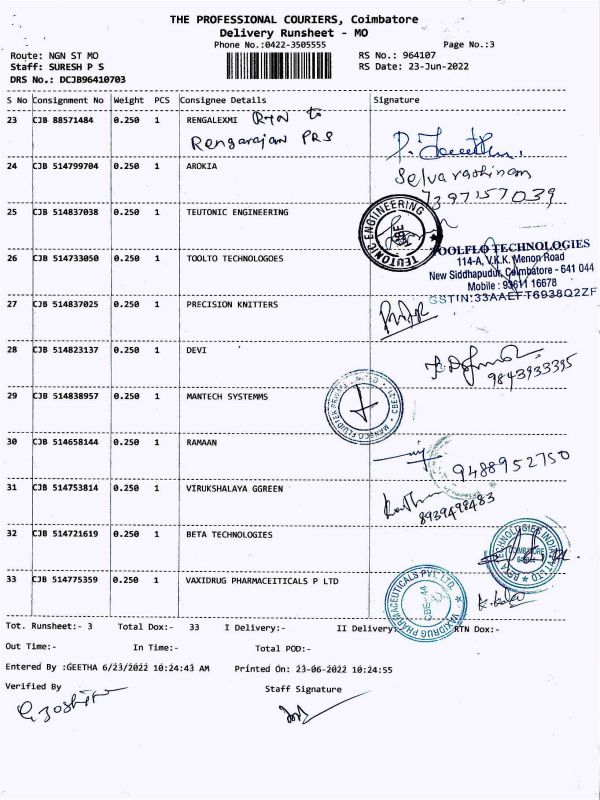 THE PROFESSIONAL COURIERS, Coimbatore
Delivery Runsheet - MO
Phone No.:0422-3505555 Page No.:3
Route: NGN ST MO RS No.: 964107
Staff: SURESH P S RS Date: 23-Jun-2022
DRS No.: DCJB96410703
S No Consignment No Weight PCS Consignee Details Signature
23 CJB 88571484 0.250 1 RENGALEXMI RTN to
Rengarajan PRS
24 CJB 514799704 0.250 1 AROKIA
Selvarathinam
7397157039
25 CJB 514837038 0.250 1 TEUTONIC ENGINEERING
TEUTONIC ENGINEERING
CBE
26 CJB 514733050 0.250 1 TOOLTO TECHNOLOGOES
TOOLFLO TECHNOLOGIES
114-A, V.K.K. Menon Road
New Siddhapudur, Coimbatore - 641 044
Mobile : 93611 16678
GSTIN:33AAEFT6938Q2ZF
27 CJB 514837025 0.250 1 PRECISION KNITTERS
28 CJB 514823137 0.250 1 DEVI
9843933395
29 CJB 514838957 0.250 1 MANTECH SYSTEMMS
30 CJB 514658144 0.250 1 RAMAAN
9488952750
31 CJB 514753814 0.250 1 VIRUKSHALAYA GGREEN
8939498483
32 CJB 514721619 0.250 1 BETA TECHNOLOGIES
COIMBATORE
33 CJB 514775359 0.250 1 VAXIDRUG PHARMACEITICALS P LTD
VAXIDRUG PHARMACEUTICALS PVT. LTD.
CBE-44
Tot. Runsheet:- 3 Total Dox:- 33 I Delivery:- II Delivery:- RTN Dox:-
Out Time:- In Time:- Total POD:-
Entered By :GEETHA 6/23/2022 10:24:43 AM Printed On: 23-06-2022 10:24:55
Verified By Staff Signature